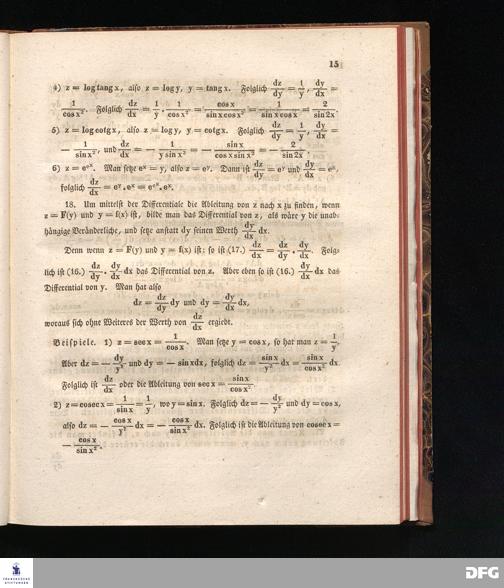 15
4) z = log tang x, also z = log y, y = tang x. Folglich dz/dy = 1/y, dy/dx =
1/cos x². Folglich dz/dx = 1/y · 1/cos x² = cos x/sin x cos x² = 1/sin x cos x = 2/sin 2x.
5) z = log cotg x, also z = log y, y = cotg x. Folglich dz/dy = 1/y, dy/dx =
— 1/sin x², und dz/dx = — 1/y sin x² = — sin x/cos x sin x² = — 2/sin 2x.
6) z = e^{e^x}. Man setze e^x = y, also z = e^y. Dann ist dz/dy = e^y und dy/dx = e^x,
folglich dz/dx = e^y . e^x = e^{e^x}. e^x.
18. Um mittelst der Differentiale die Ableitung von z nach x zu finden, wenn
z = F(y) und y = f(x) ist, bilde man das Differential von z, als wäre y die unab-
hängige Veränderliche, und setze anstatt dy seinen Werth dy/dx dx.
Denn wenn z = F(y) und y = f(x) ist: so ist (17.) dz/dx = dz/dy · dy/dx. Folg-
lich ist (16.) dz/dy · dy/dx dx das Differential von z. Aber eben so ist (16.) dy/dx dx das
Differential von y. Man hat also
dz = dz/dy dy und dy = dy/dx dx,
woraus sich ohne Weiteres der Werth von dz/dx ergiebt.
Beispiele. 1) z = sec x = 1/cos x. Man setze y = cos x, so hat man z = 1/y.
Aber dz = — dy/y² und dy = — sin x dx, folglich dz = sin x/y² dx = sin x/cos x² dx.
Folglich ist dz/dx oder die Ableitung von sec x = sin x/cos x².
2) z = cosec x = 1/sin x = 1/y, wo y = sin x. Folglich dz = — dy/y² und dy = cos x,
also dz = — cos x/y² dx = — cos x/sin x² dx. Folglich ist die Ableitung von cosec x =
— cos x/sin x².
FRANCKESCHE
STIFTUNGEN
DFG